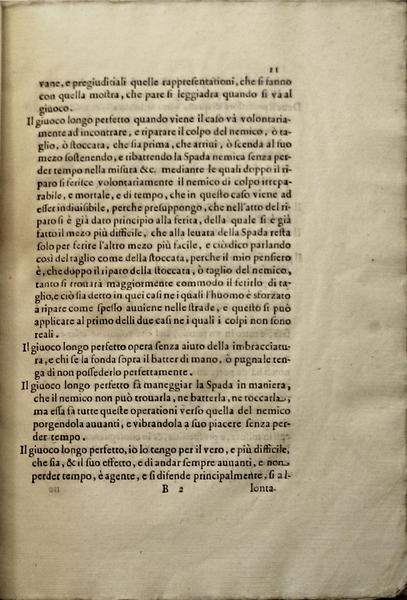 11
vane, e pregiuditiali quelle rappresentationi, che si fanno
con quella mostra, che pare si leggiadra quando si và al
giuoco.
Il giuoco longo perfetto quando viene il caso và volontaria-
mente ad incontrare, e riparare il colpo del nemico, ò ta-
glio, ò stoccata, che sia prima, che arriui, ò scenda al suo
mezo sostenendo, e ribattendo la Spada nemica senza per-
der tempo nella misura &c. mediante le quali doppo il ri-
paro si ferisce volontariamente il nemico di colpo irrepa-
rabile, e mortale, e di tempo, che in questo caso viene ad
esser indiuisibile, perche presuppongo, che nell'atto del ri-
paro si è già dato principio alla ferita, della quale si è già
fatto il mezo più difficile, che alla leuata della Spada resta
solo per ferire l'altro mezo più facile, e ciò dico parlando
così del taglio come della stoccata, perche il mio pensiero
è, che doppo il riparo della stoccata, ò taglio del nemico,
tanto si trouarà maggiormente commodo il ferirlo di ta-
glio, e ciò sia detto in quei casi ne i quali l'huomo è sforzato
à ripare come spesso auuiene nelle strade, e questo si può
applicare al primo delli due casi ne i quali i colpi non sono
reali.
Il giuoco longo perfetto opera senza aiuto della imbracciatu-
ra, e chi se la fonda sopra il batter di mano, ò pugnale ten-
ga di non possederlo perfettamente.
Il giuoco longo perfetto fà maneggiar la Spada in maniera,
che il nemico non può trouarla, ne batterla, ne toccarla,
ma essa fà tutte queste operationi verso quella del nemico
porgendola auuanti, e vibrandola a suo piacere senza per-
der tempo.
Il giuoco longo perfetto, io lo tengo per il vero, e più difficile,
che sia, & il suo effetto, e di andar sempre auuanti, e non
perder tempo, è agente, e si difende principalmente, si al-
B 2 lonta-